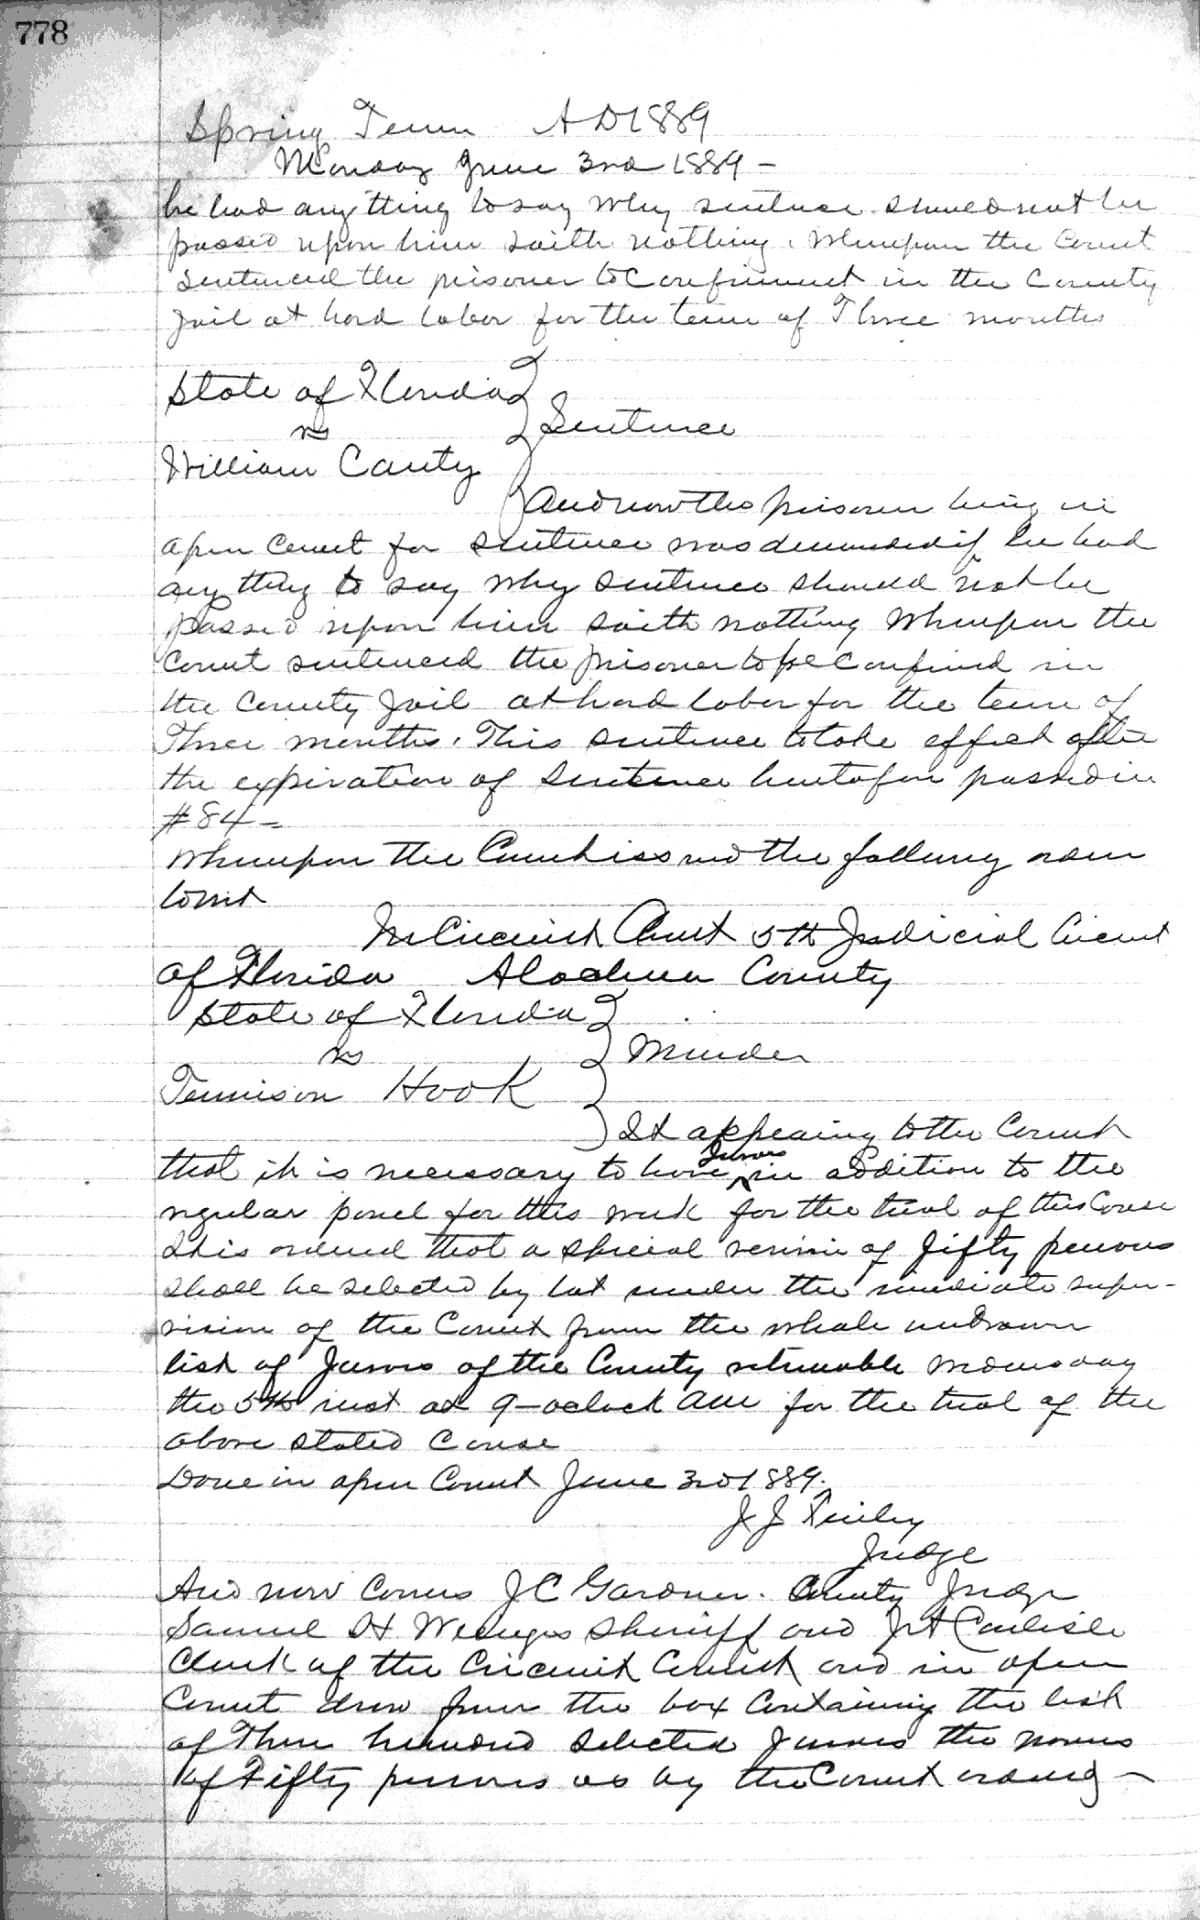 778
Spring Term AD 1889
Monday June 3rd 1889 -
he had any thing to say why sentence should not be
passed upon him saith nothing. Whereupon the Court
sentenced the prisoner to confinement in the County
Jail at hard labor for the term of Three months
State of Florida
vs
Sentence
William Canty
And now the prisoner being in
open Court for sentence was demanded if he had
any thing to say why sentence should not be
passed upon him saith nothing Whereupon the
Court sentenced the prisoner to be confined in
the County Jail at hard labor for the term of
Three months. This sentence to take effect after
the expiration of sentence heretofore passed in
#84 -
Whereupon the Court issued the following order
towit
In Circuit Court 5th Judicial Circuit
of Florida Alachua County
State of Florida
vs
Murder
Tennison Hook
It appearing to the Court
that it is necessary to have Jurors in addition to the
regular panel for this week for the trial of this Cause
It is ordered that a special venire of fifty persons
shall be selected by lot under the immediate super-
vision of the Court from the whole undrawn
list of Jurors of the County returnable Wednesday
the 5th inst at 9-oclock AM for the trial of the
above stated Cause
Done in open Court June 3rd 1889.
J J Finley
Judge
And now comes J C Gardner. County Judge
Samuel H Wienges Sheriff and J A Carlisle
Clerk of the Circuit Court and in open
Court draw from the box containing the list
of Three hundred selected Jurors the names
of Fifty persons as by the Court ordered -